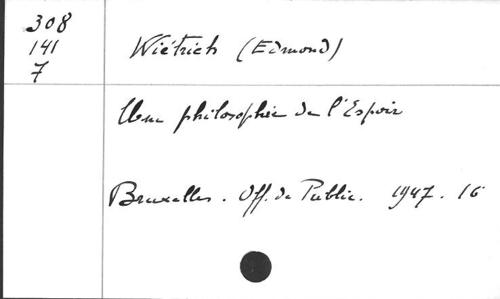 308
141
7
Wiétrich (Edmond)
Une philosophie de l'Espoir
Bruxelles. Off. de Public. 1947. 16